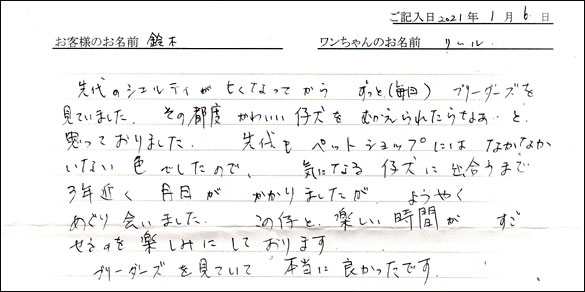 ご記入日 2021年 1月 6日
お客様のお名前 鈴木 ワンちゃんのお名前 りぃル
先代のシェルティが亡くなってから ずっと(毎日) ブリーダーズを
見ていました。その都度 かわいい仔犬を むかえられたらなぁ… と、
思っておりました。 先代も ペットショップには なかなか
いない色でしたので、 気になる仔犬に出合うまで
3年近く 月日が かかりましたが、 ようやく
めぐり会いました。 この仔と、楽しい時間が すご
せるのを楽しみにしております
ブリーダーズを見ていて 本当に良かったです。